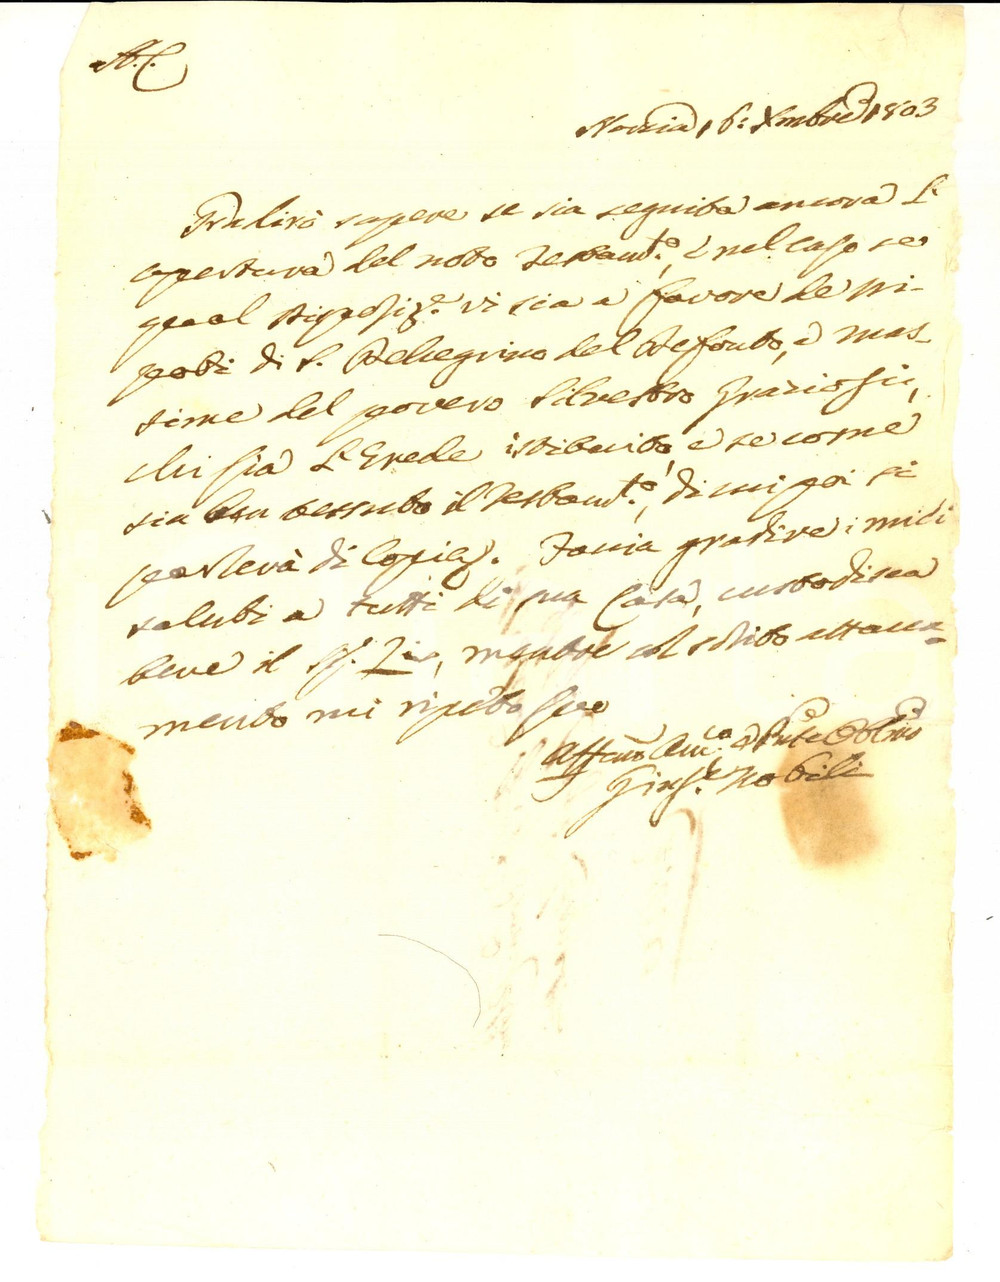 A. C.
Norcia, 6: Xmbre 1803
Gradirò sapere se sia seguita ancora l'
apertura del noto Testam.to, e nel caso se
qual disposiz.e vi sia a favore de ni-
poti di S. Pellegrino del Defonto, e mas-
sime del povero Silvestro Graziosi,
chi sia l'Erede istituito, e se come
sia tessuto il Testam.to, di cui poi si
porterà di copia. Faccia gradire i miei
saluti a tutti di sua Casa, custodisca
bene il Sig. Zio, mentre col solito attacca-
mento mi ripeto suo
Affmo Am.co
Gius.e Nobili